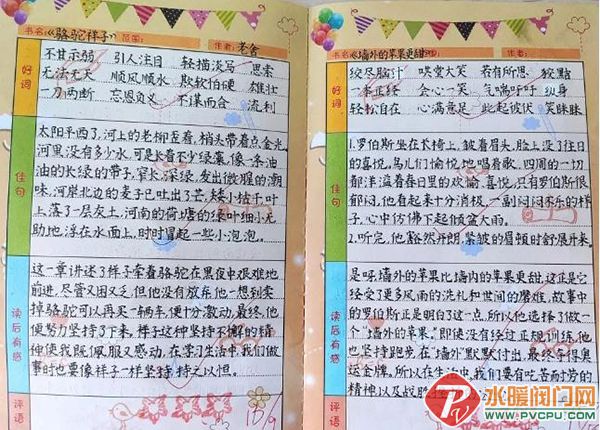 书名:《骆驼祥子》 范围: 作者:老舍
好词
不甘示弱 引人注目 轻描淡写 思索
无法无天 顺风顺水 欺软怕硬 雄壮
一刀两断 忘恩负义 不谋而合 流利
佳句
太阳平西了,河上的老柳歪着,梢头带着点金光。
河里没有多少水,可是长着不少绿藻,像一条油
油的长绿的带子,窄长,深绿,发出微腥的潮
味。河岸北边的麦子已吐出了芒,矮小枯干,叶
上落了一层灰土,河南的荷塘的绿叶细小无
助地,浮在水面上,时时冒起一些小泡泡。
读后有感
这一章讲述了祥子牵着骆驼在黑夜中艰难地
前进,尽管又困又乏,但他没有放弃,他一想到卖
掉骆驼可以再买一辆车,便十分激动,最终,他
便努力坚持了下来。祥子这种坚持不懈的精
神使我既佩服又感动,在学习生活中,我们做
事时也要像祥子一样坚持,持之以恒。
评语
书名《墙外的苹果更甜》 作者:
好词
绞尽脑汁 哄堂大笑 若有所思 狡黠
一本正经 会心一笑 气喘吁吁 纵身
轻松自在 心满意足 此起彼伏 笑眯眯
佳句
1.罗伯斯坐在长椅上,皱着眉头,脸上没了往日
的喜悦,鸟儿们愉悦地唱着歌,四周的一切
都洋溢着春日里的欢愉、喜悦,只有罗伯斯很
郁闷,他看起来十分消极,一副闷闷不乐的样
子,心中仿佛下起倾盆大雨。
2.听完,他豁然开朗,紧皱的眉顿时舒展开来。
读后有感
是呀,墙外的苹果比墙内的苹果更甜,这正是它
经受了更多风雨的洗礼和世间的磨难,故事中
的罗伯斯正是明白了这一点,所以他选择了做一
个“墙外的苹果”。即使没有经过正规训练,他
也坚持跑步,在“墙外”默默付出,最终夺得奥
运金牌,所以在生活中,我们要有吃苦而耐劳的
精神以及战胜
评语
水暖阀门网
WWW.PVCPU.COM